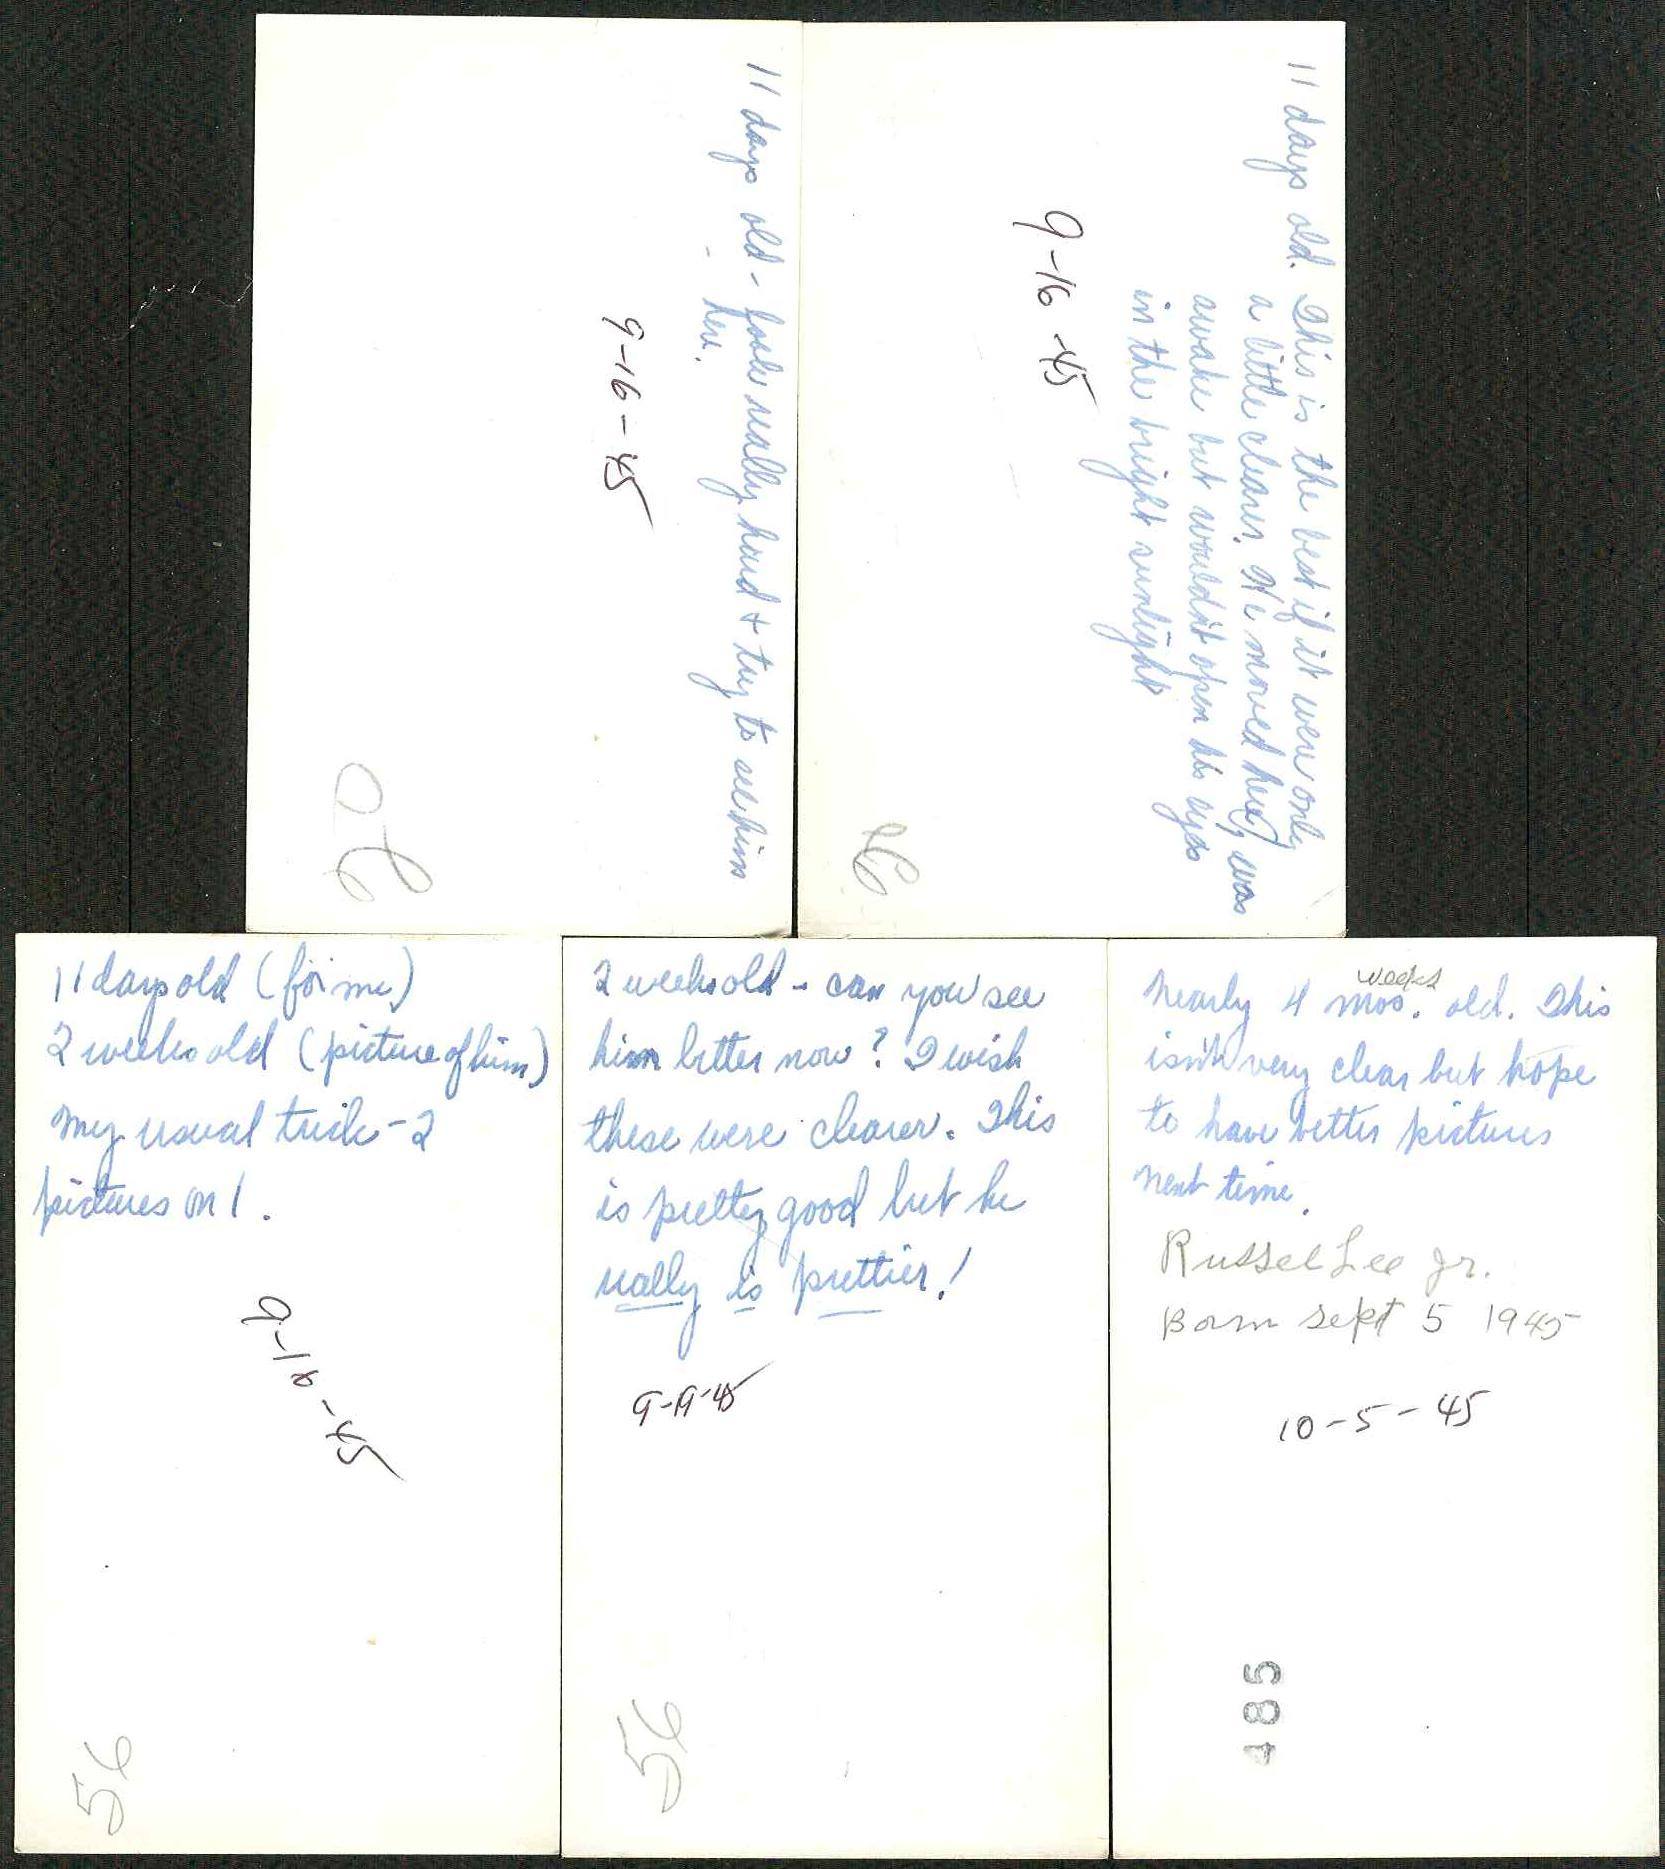 11 days old - look really hard + try to see him
- here.
9-16-45
11 days old. This is the best if it were only
a little clearer. He moved here, was
awake but wouldn't open his eyes
in the bright sunlight
9-16-45
11 days old (for me)
2 weeks old (picture of him)
My usual trick - 2
pictures on 1.
56
2 weeks old - can you see
him better now? I wish
these were clearer. This
is pretty good but he
really is prettier!
9-19-45
56
weeks
Nearly 4 mos. old. This
isn't very clear but hope
to have better pictures
next time.
Russel Lee Jr.
Born Sept 5 1945
10-5-45
485